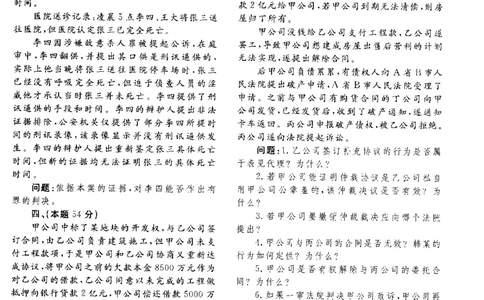 时间。
医院送诊记录:凌晨5点李四、王大将张三送
往医院,但医院认定张三已完全死亡。
李四因涉嫌故意杀人罪被提起公诉,在庭
审中,李四翻供,并提出其口供是刑讯逼供的,
实际上他当晚将张三送往医院停车场时,张三
已经没有呼吸完全死亡,但迫于侦查人员的淫
威他才承认当时张三并未死亡。李四提供了刑
讯逼供的手段和时间。李四的辩护人提出非法
证据排除,公安机关仅提供了部分李四所提时
间的刑讯录像,该录像显示并没有刑讯逼供发
生。李四的辩护人提出重新鉴定张三具体死亡
时间,但新的证据均无法证明张三的具体死亡
时间。
问题:依据本案的证据,对李四能否作出有
罪的判决。
四、(本题54分)
甲公司中标了某地块的开发权,与乙公司签
订合同,由乙公司负责建筑施工,但甲公司未支
付工程款项,于是甲公司和乙公司协商又重新达
成协议,将甲公司之前的欠款本金8500万元作为
对乙公司的借款,乙公司同意以未完成的工程做
抵押向银行贷款2亿元,甲公司偿还借款5000万
款2亿元给甲公司,若甲公司到期无法清偿,则房
屋归丁所有。
甲公司没钱给乙公司支付工程款,乙公司遂
罢工,导致甲公司想建成房屋出售后营利的计划
无法实现,遂提出解除合同。
后甲公司负债累累,有债权人向A省B市人
民法院提出破产申请,A省B市人民法院受理了
申请。之前与甲公司有购货合同的丁公司向甲
公司发货,已经发货后,收到了破产通知,遂通知
卡车返回。丙公司申报破产债权,被乙公司拒绝。
丙公司遂向法院提起诉讼。
问题:1.乙公司签订补充协议的行为是否属
于表见代理?为什么?
2.若甲公司能证明仲裁协议是乙公司私自
用甲公司公章盖的,该仲裁决议是否有效?为
什么?
3.若甲公司要撤销仲裁裁决应向哪个法院
提出?
4.甲公司与丙公司的合同是否无效?韩某的
行为如何定性?为什么?
5.甲公司是否有权解除与丙公司的委托合
同?为什么?
6.如果一审法院判决甲公司败诉,甲公司再